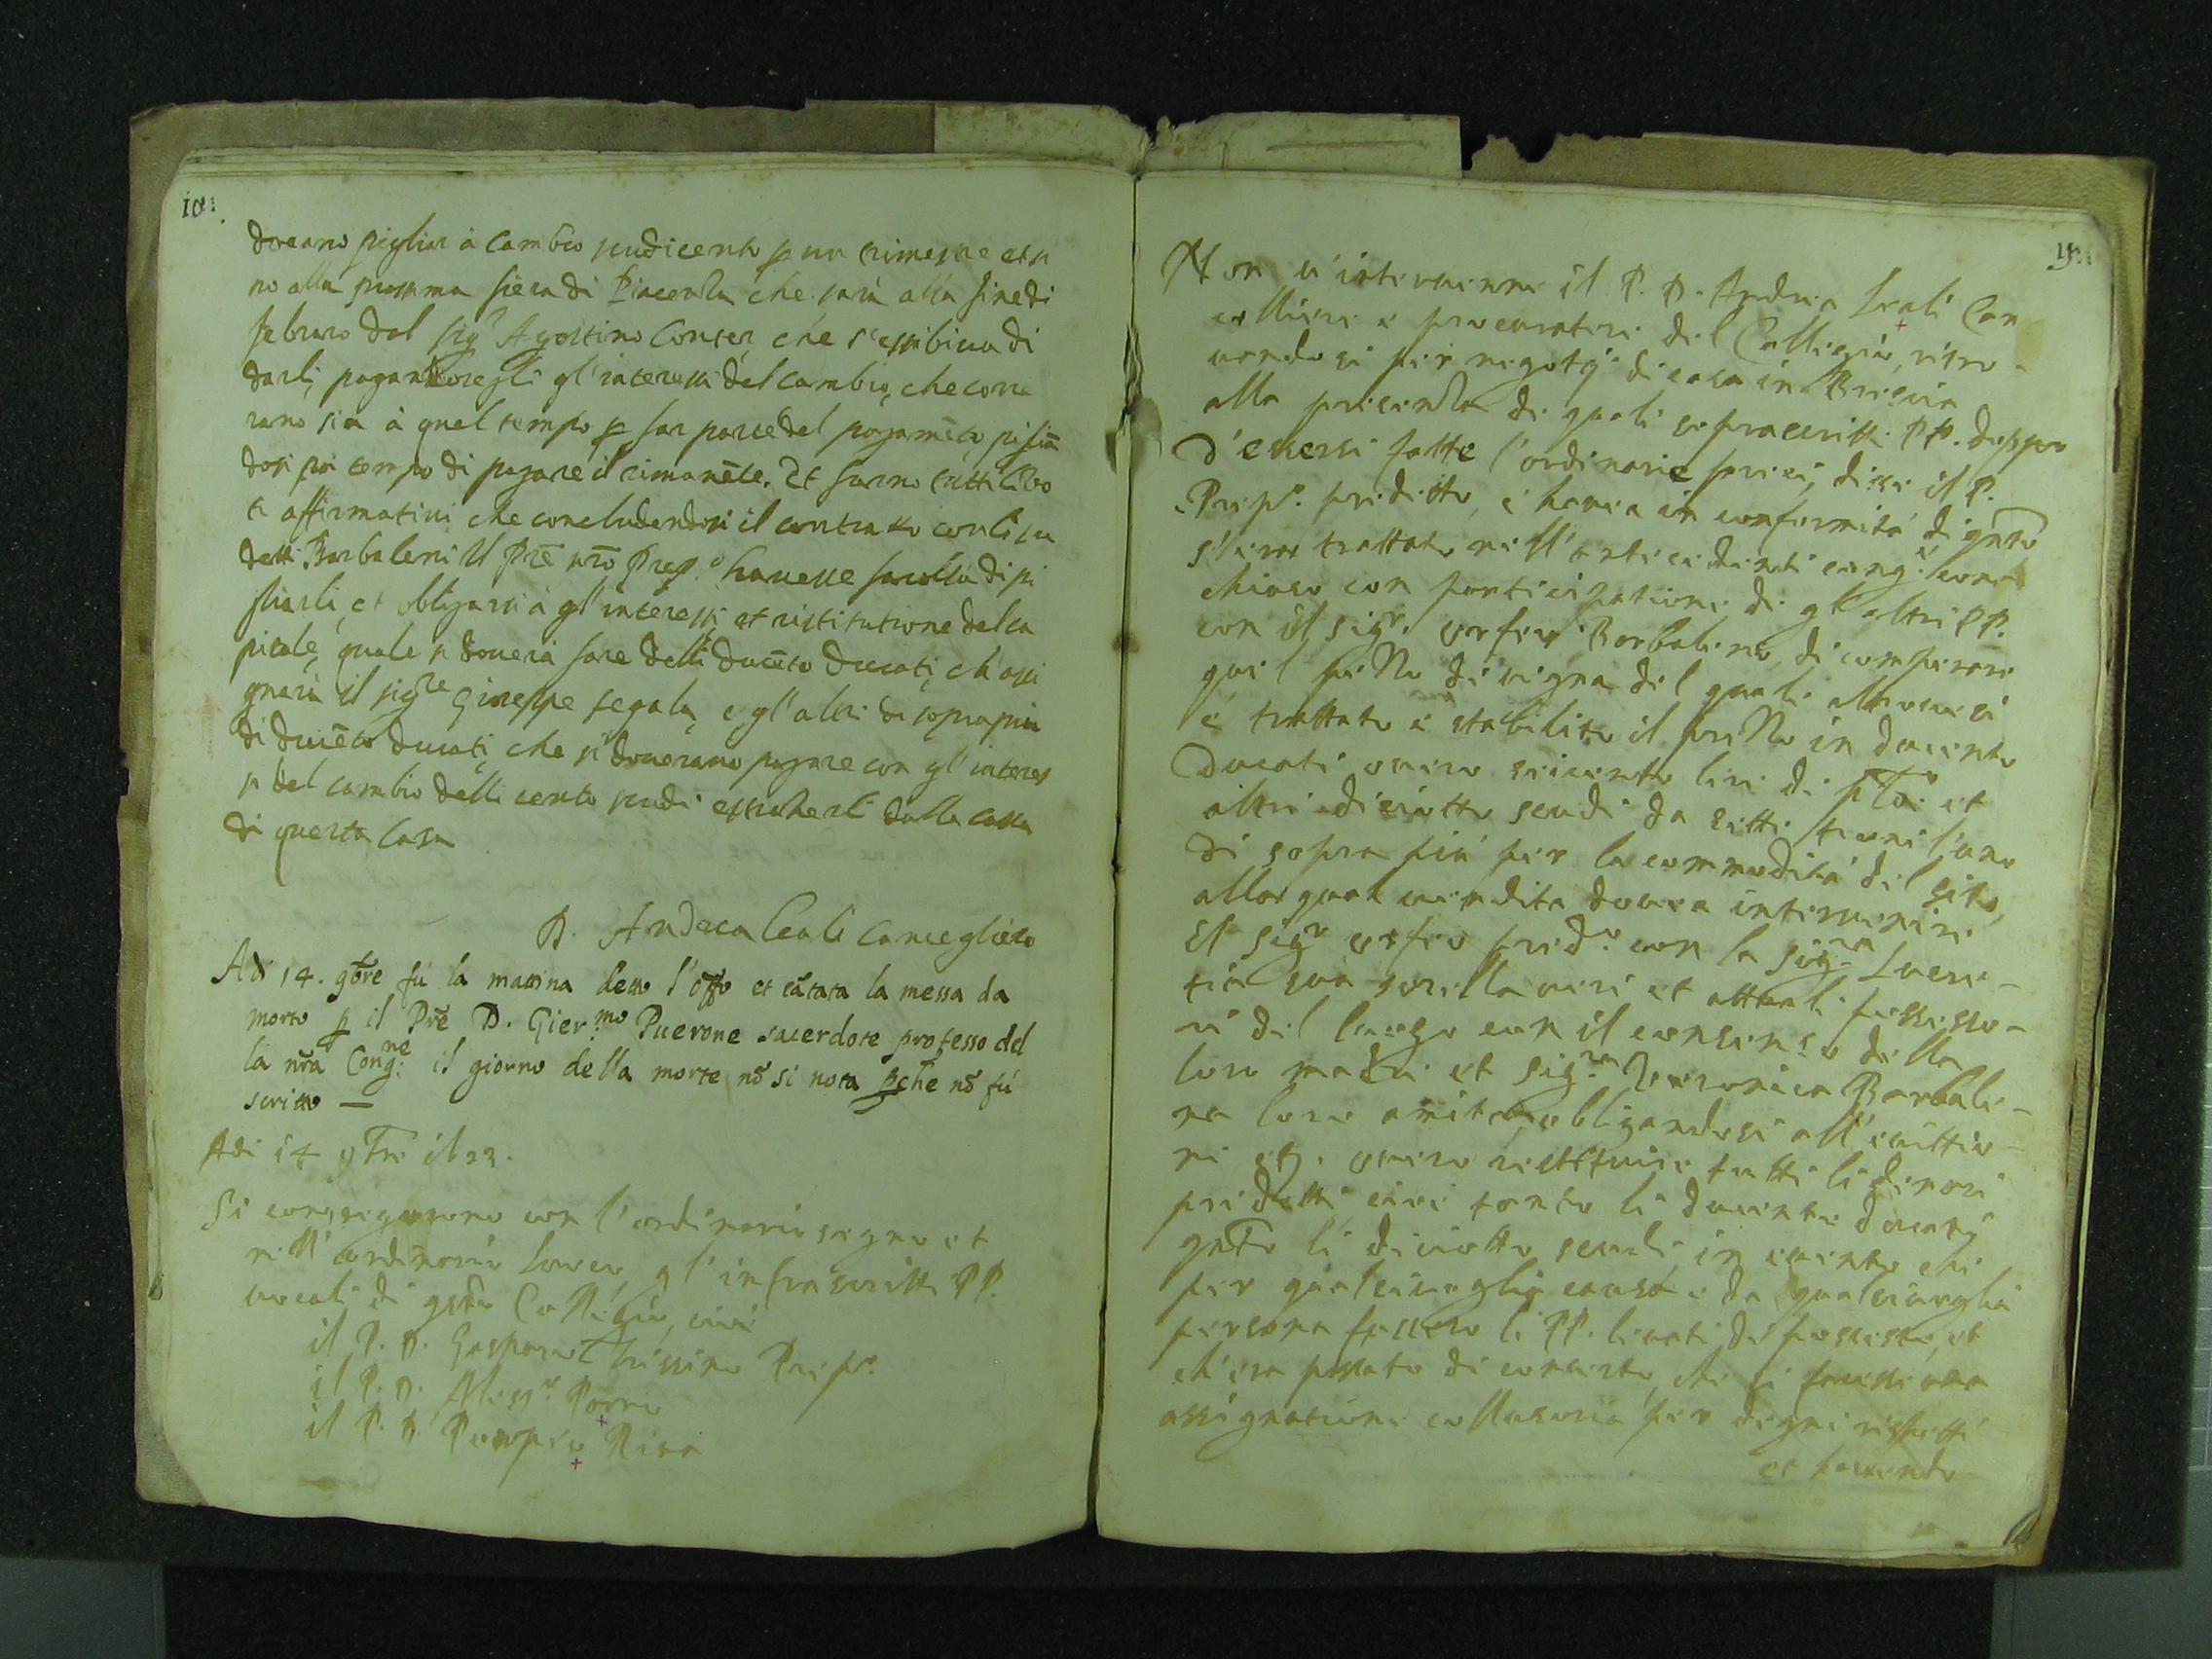 18.
doveano pigliar à cambio scudi cento p un trimestre et si
no alla prossima fiera di Piacenza che sarà alla fine di
febraro dal sigr Agostino Conter, che s'essibiva di
darli, pagandosegli gl'interessi del cambio, che corre
rano sin à quel tempo p far parte del pagamẽto, pigliã
dosi poi tempo di pagare il rimanẽte. Et furno tutti li vo
ti affirmativi che concludendosi il contratto con li su
detti Barbaleni il Prẽ nrõ Prep.o havesse facoltà di pi
gliarli, et obligarsi à gl'interessi, et restitutione del ca
pitale, quale si doverà fare delli ducẽto ducati, ch'assi
gnarà il sigre Giuseppe segala, e gl'altri di sopra più
di ducẽto ducati, che si doverano pagare con gl'interes
si del cambio delli cento scudi estraherli dalla cassa
di questa casa
D. Andrea Leali Cancegliero
Adi 14. 9bre fu la matina detto l'offo et cãtata la messa da
morto p il Prẽ D. Gier.mo Puerone sacerdote professo del
la nrã Cong.ne il giorno della morte nõ si nota pchẽ nõ fù
scritto —
Adi 14 9bre il 22.
Si congregorono con l'ordinario segno et
nell'ordinario luoco, gl'infrascritti PP.
vocali di qsto Collegio, cioè
il P. D. Gasparo Trissino Prep.o
il P. D. Aless.o Porro
il P. D. Pompeo Riva
19.
Non v'intervenne il P. D. Andrea Leali Can
celliere e procuratore del Collegio, ritro-
vandosi per negotij di casa in Brescia
alla presenza di quali soprascritti PP. doppo
d'essersi fatte l'ordinarie preci, disse il P.
Prep.o predetto, c'havea in conformità di qnto
s'era trattato nell'antecedente cong.e con
chiuso con participatione de gl'altri PP.
con il sigr. Orfeo Barbaleno, di comperare
quel pezzo di vigna del quale altrove si
è trattato e stabilito il prezzo in ducento
Ducati overo seicento lire di et
altri dieciotto scudi da sette troni l'uno
di sopra più per la commodità del sito,
alla qual vendita dovea intervenire
il sigr Orfeo pred.o con la sig.ra Lucre-
tia sua sorella veri et attuali possesso-
ri del luogo con il consenso della
loro madre et sig.ra Veronica Barbale-
na loro amita, obligandosi all'evittio-
ne etc. overo restituire tutti li denari
predetti cioè tanto li ducento ducati
qnto li dieciotto scudi in evento che
per qualsivoglia causa e da qualsivoglia
persona fossero li PP. levati di possesso, et
ch'era passato di concerto, che si facesse una
assignatione collusoria per degni rispetti
et havendo